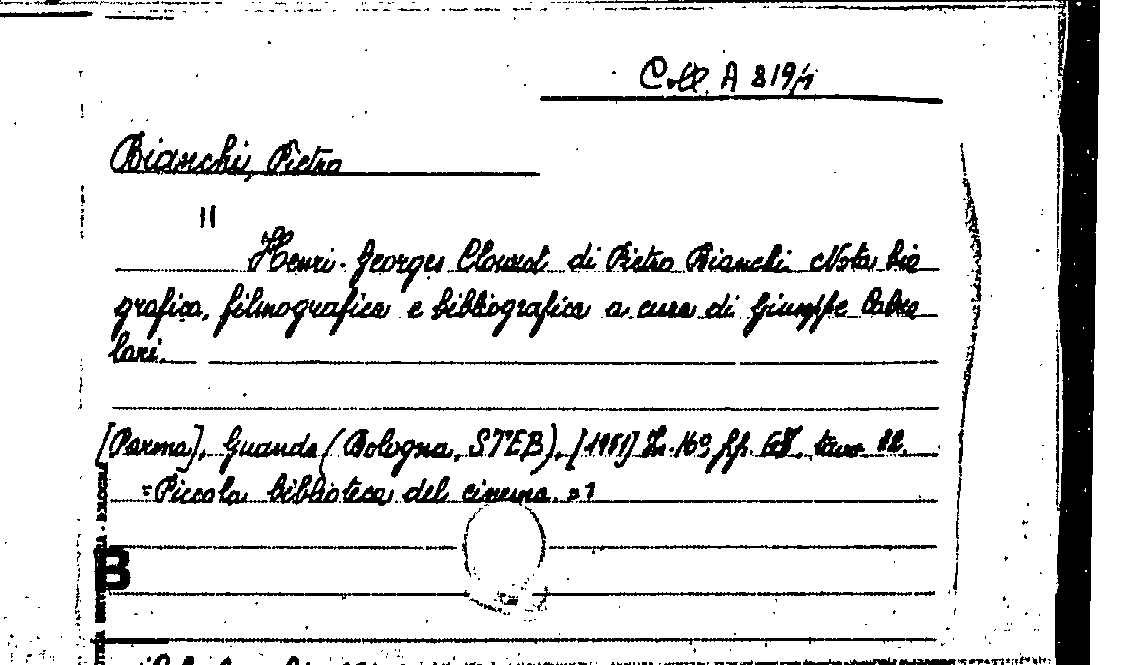 Coll. A 819/1
Bianchi, Pietro
"
Henri-Georges Clouzot di Pietro Bianchi. Nota bio
grafica, filmografica e bibliografica a cura di Giuseppe Calzo
lari.
[Parma], Guanda (Bologna, STEB), [1951] In-16° pp. tav.
=Piccola biblioteca del cinema. =1
B